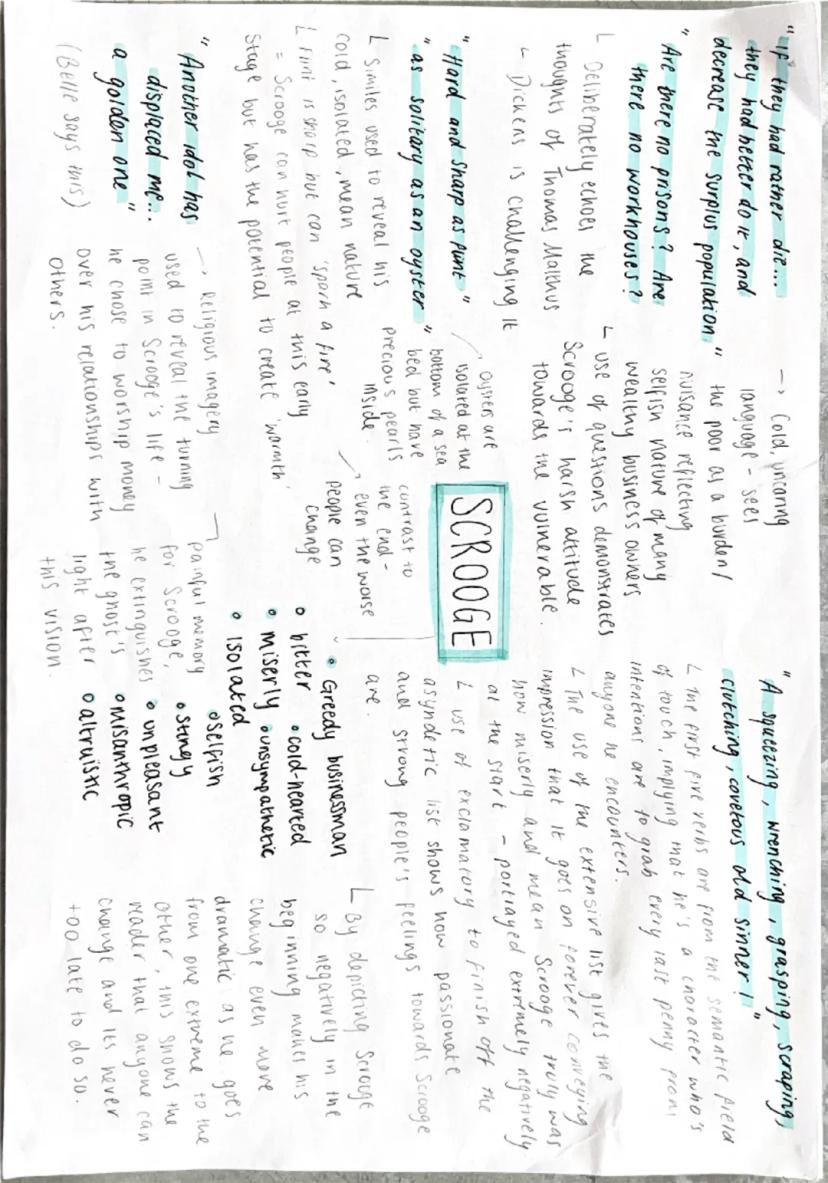 " If they had rather die...
they had better do it, and
decrease the surplus population "
" Are there no prisons? Are
there no workhouses?
↳ Deliberately echoes the
thoughts of Thomas Malthus
↳ Dickens is challenging it
→ Cold, uncaring
language - sees
the poor as a burden/
nuisance reflecting
selfish nature of many
wealthy business owners
↳ use of questions demonstrates
Scrooge's harsh attitude
towards the vulnerable.
" A squeezing, wrenching, grasping, scraping,
clutching, covetous old sinner! "
↳ The first five verbs are from the semantic field
of touch, implying that he's a character who's
intentions are to grab every last penny from
anyone he encounters.
↳ The use of the extensive list gives the
impression that it goes on forever conveying
how miserly and mean Scrooge truly was
at the start - portrayed extremely negatively
↳ use of exclamatory to finish off the
asyndetic list shows how passionate
and strong people's feelings towards Scrooge
are.
SCROOGE
"Hard and sharp as flint"
"as solitary as an oyster "
↳ Similes used to reveal his
cold, isolated, mean nature
↳ Flint is sharp but can 'spark a fire'
= Scrooge can hurt people at this early
stage but has the potential to create 'warmth'
oysters are
isolated at the
bottom of a sea
bed but have
precious pearls
inside.
contrast to
the end -
even the worse
people can
change
• Greedy businessman
• bitter • cold-hearted
• miserly • unsympathetic
• isolated
• selfish
• stingy
• unpleasant
• misanthropic
• altruistic
↳ By depicting Scrooge
so negatively in the
beginning makes his
change even more
dramatic as he goes
from one extreme to the
other, this shows the
reader that anyone can
change and its never
too late to do so.
" Another idol has
displaced me...
a golden one "
(Belle says this)
→ Religious imagery
used to reveal the turning
point in Scrooge's life -
he chose to worship money
over his relationships with
others.
painful memory
for Scrooge,
he extinguishes
the ghost's
light after
this vision.